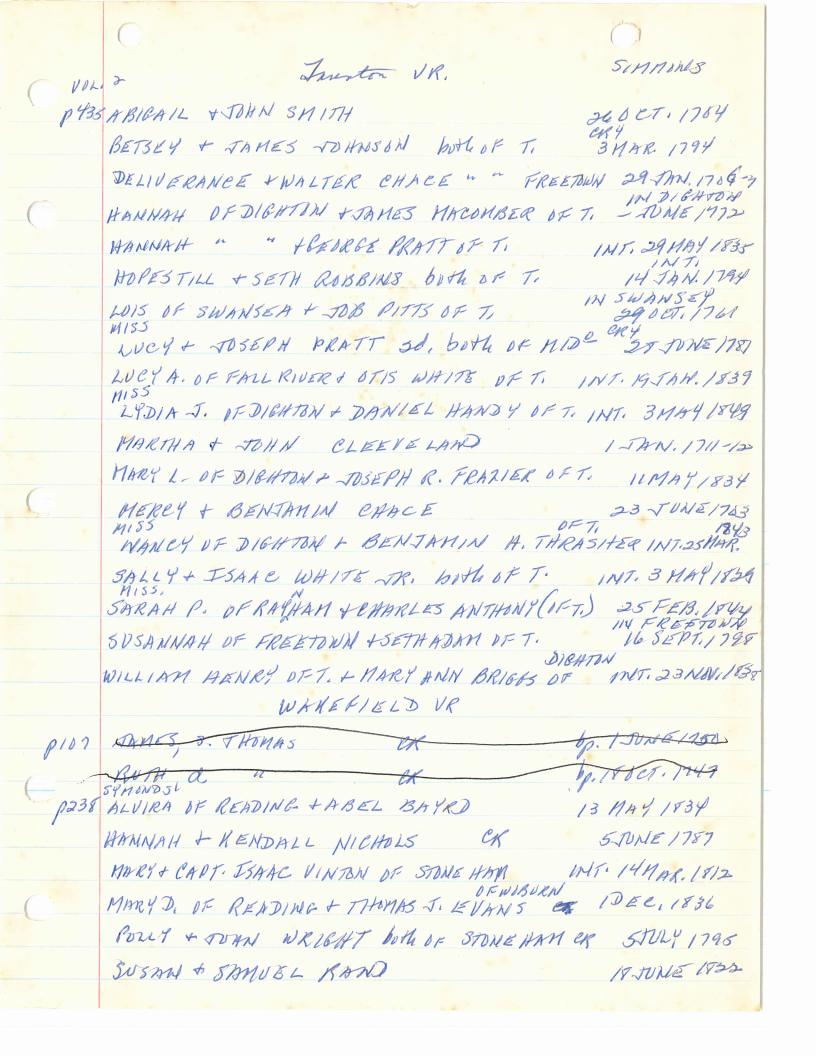 VOL. 2 Taunton VR. SIMMONS
p435 ABIGAIL & JOHN SMITH 26 OCT. 1704
CR4
BETSEY & JAMES JOHNSON both OF T. 3 MAR. 1794
DELIVERANCE & WALTER CHACE " " FREETOWN 29 JAN. 1706-7
IN DIGHTON
HANNAH OF DIGHTON & JAMES MACOMBER OF T. – JUNE 1772
HANNAH " " & GEORGE PRATT OF T. INT. 29 MAY 1835
INT.
HOPESTILL & SETH ROBBINS both OF T. 14 JAN. 1794
IN SWANSEY
LOIS OF SWANSEA & JOB PITTS OF T. 29 OCT. 1761
MISS CR4
LUCY & JOSEPH PRATT 2d, both OF MIDO 25 JUNE 1781
LUCY A. OF FALL RIVER & OTIS WHITE OF T. INT. 19 JAN. 1839
MISS
LYDIA J. OF DIGHTON & DANIEL HANDY OF T. INT. 3 MAY 1849
MARTHA & JOHN CLEEVELAND 1 JAN. 1711-12
MARY L. OF DIGHTON & JOSEPH R. FRAZIER OF T. 11 MAY 1834
MERCY & BENJAMIN CHACE 23 JUNE 1703
MISS OF T. 1843
NANCY OF DIGHTON & BENJAMIN H. THRASHER INT. 25 MAR.
SALLY & ISAAC WHITE JR. both OF T. INT. 3 MAY 1829
MISS. N
SARAH P. OF RAYHAM & CHARLES ANTHONY (OF T.) 25 FEB. 1844
IN FREETOWN
SUSANNAH OF FREETOWN & SETH ADAM OF T. 16 SEPT. 1798
DIGHTON
WILLIAM HENRY OF T. & MARY ANN BRIGGS OF INT. 23 NOV. 1838
WAKEFIELD VR
p107 JAMES, s. THOMAS CR bp. 1 JUNE 1750
RUTH d " CR bp. 18 OCT. 1747
SYMONDS
p238 ALVIRA OF READING & ABEL BAYRD 13 MAY 1834
HANNAH & KENDALL NICHOLS CR 5 JUNE 1787
MARY & CAPT. ISAAC VINTON OF STONEHAM INT. 14 MAR. 1812
OF WOBURN
MARY D. OF READING & THOMAS J. EVANS 1 DEC. 1836
POLLY & JOHN WRIGHT both OF STONEHAM CR 5 JULY 1795
SUSAN & SAMUEL RAND 18 JUNE 1822